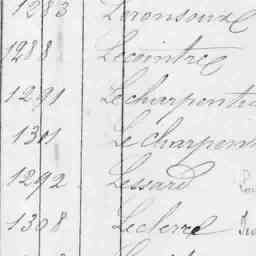 1283
1288 Lecointre
1291 Lecharpentie
1301 Lecharpent
1292 Lessard
1308 Leclerre